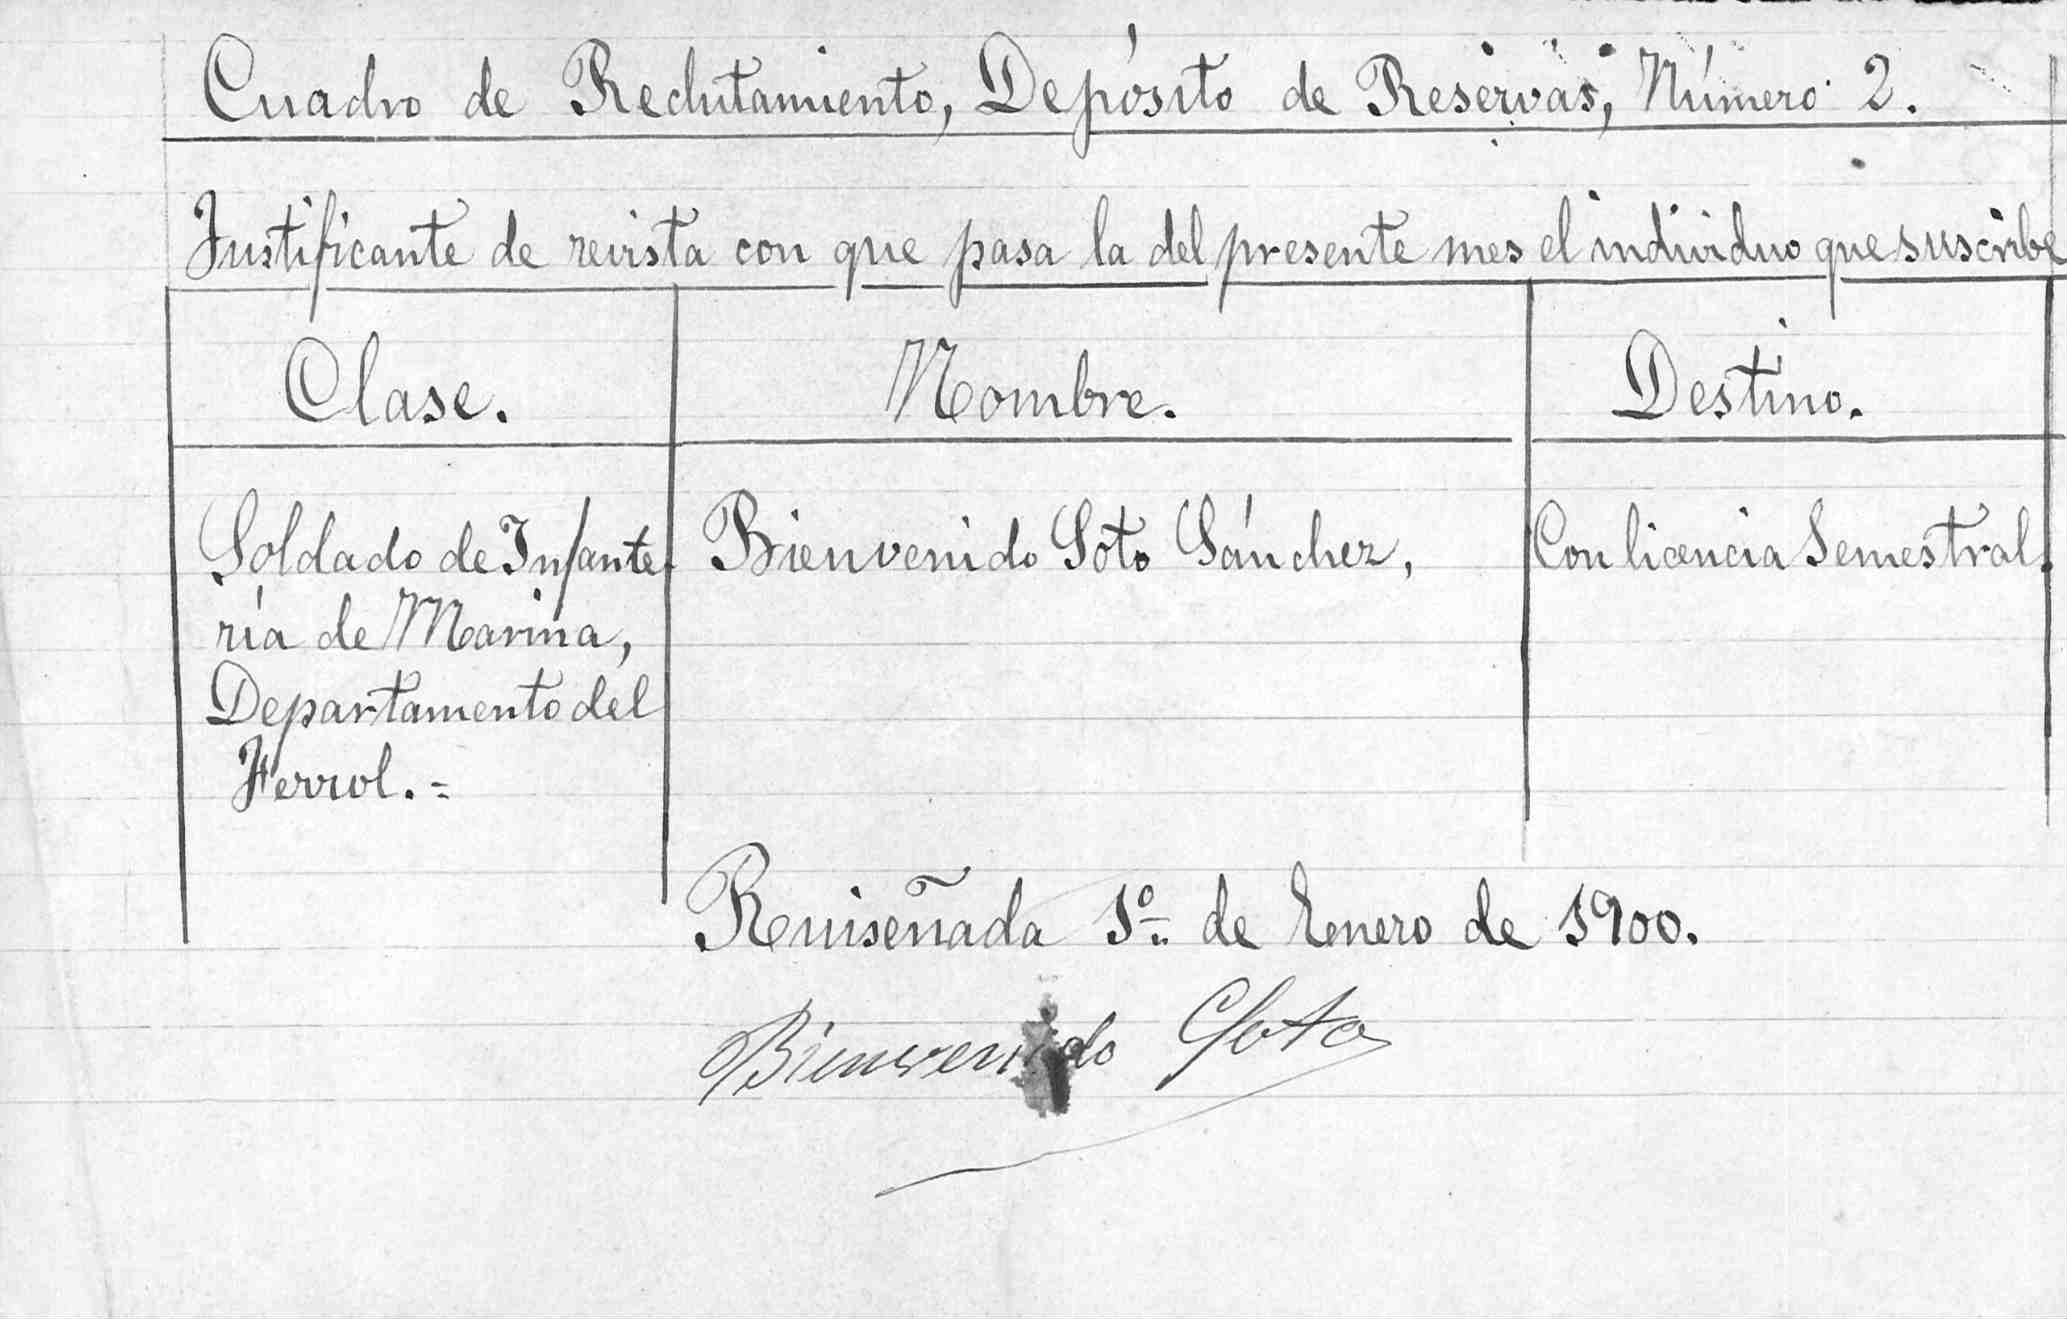 Cuadro de Reclutamiento, Depósito de Reservas, Número 2.
Justificante de revista con que pasa la del presente mes el individuo que suscribe
Clase. Nombre. Destino.
Soldado de Infante- Bienvenido Soto Sánchez, Con licencia Semestral.
ría de Marina,
Departamento del
Ferrol.=
Ruiseñada 1º de Enero de 1900.
Bienvenido Soto